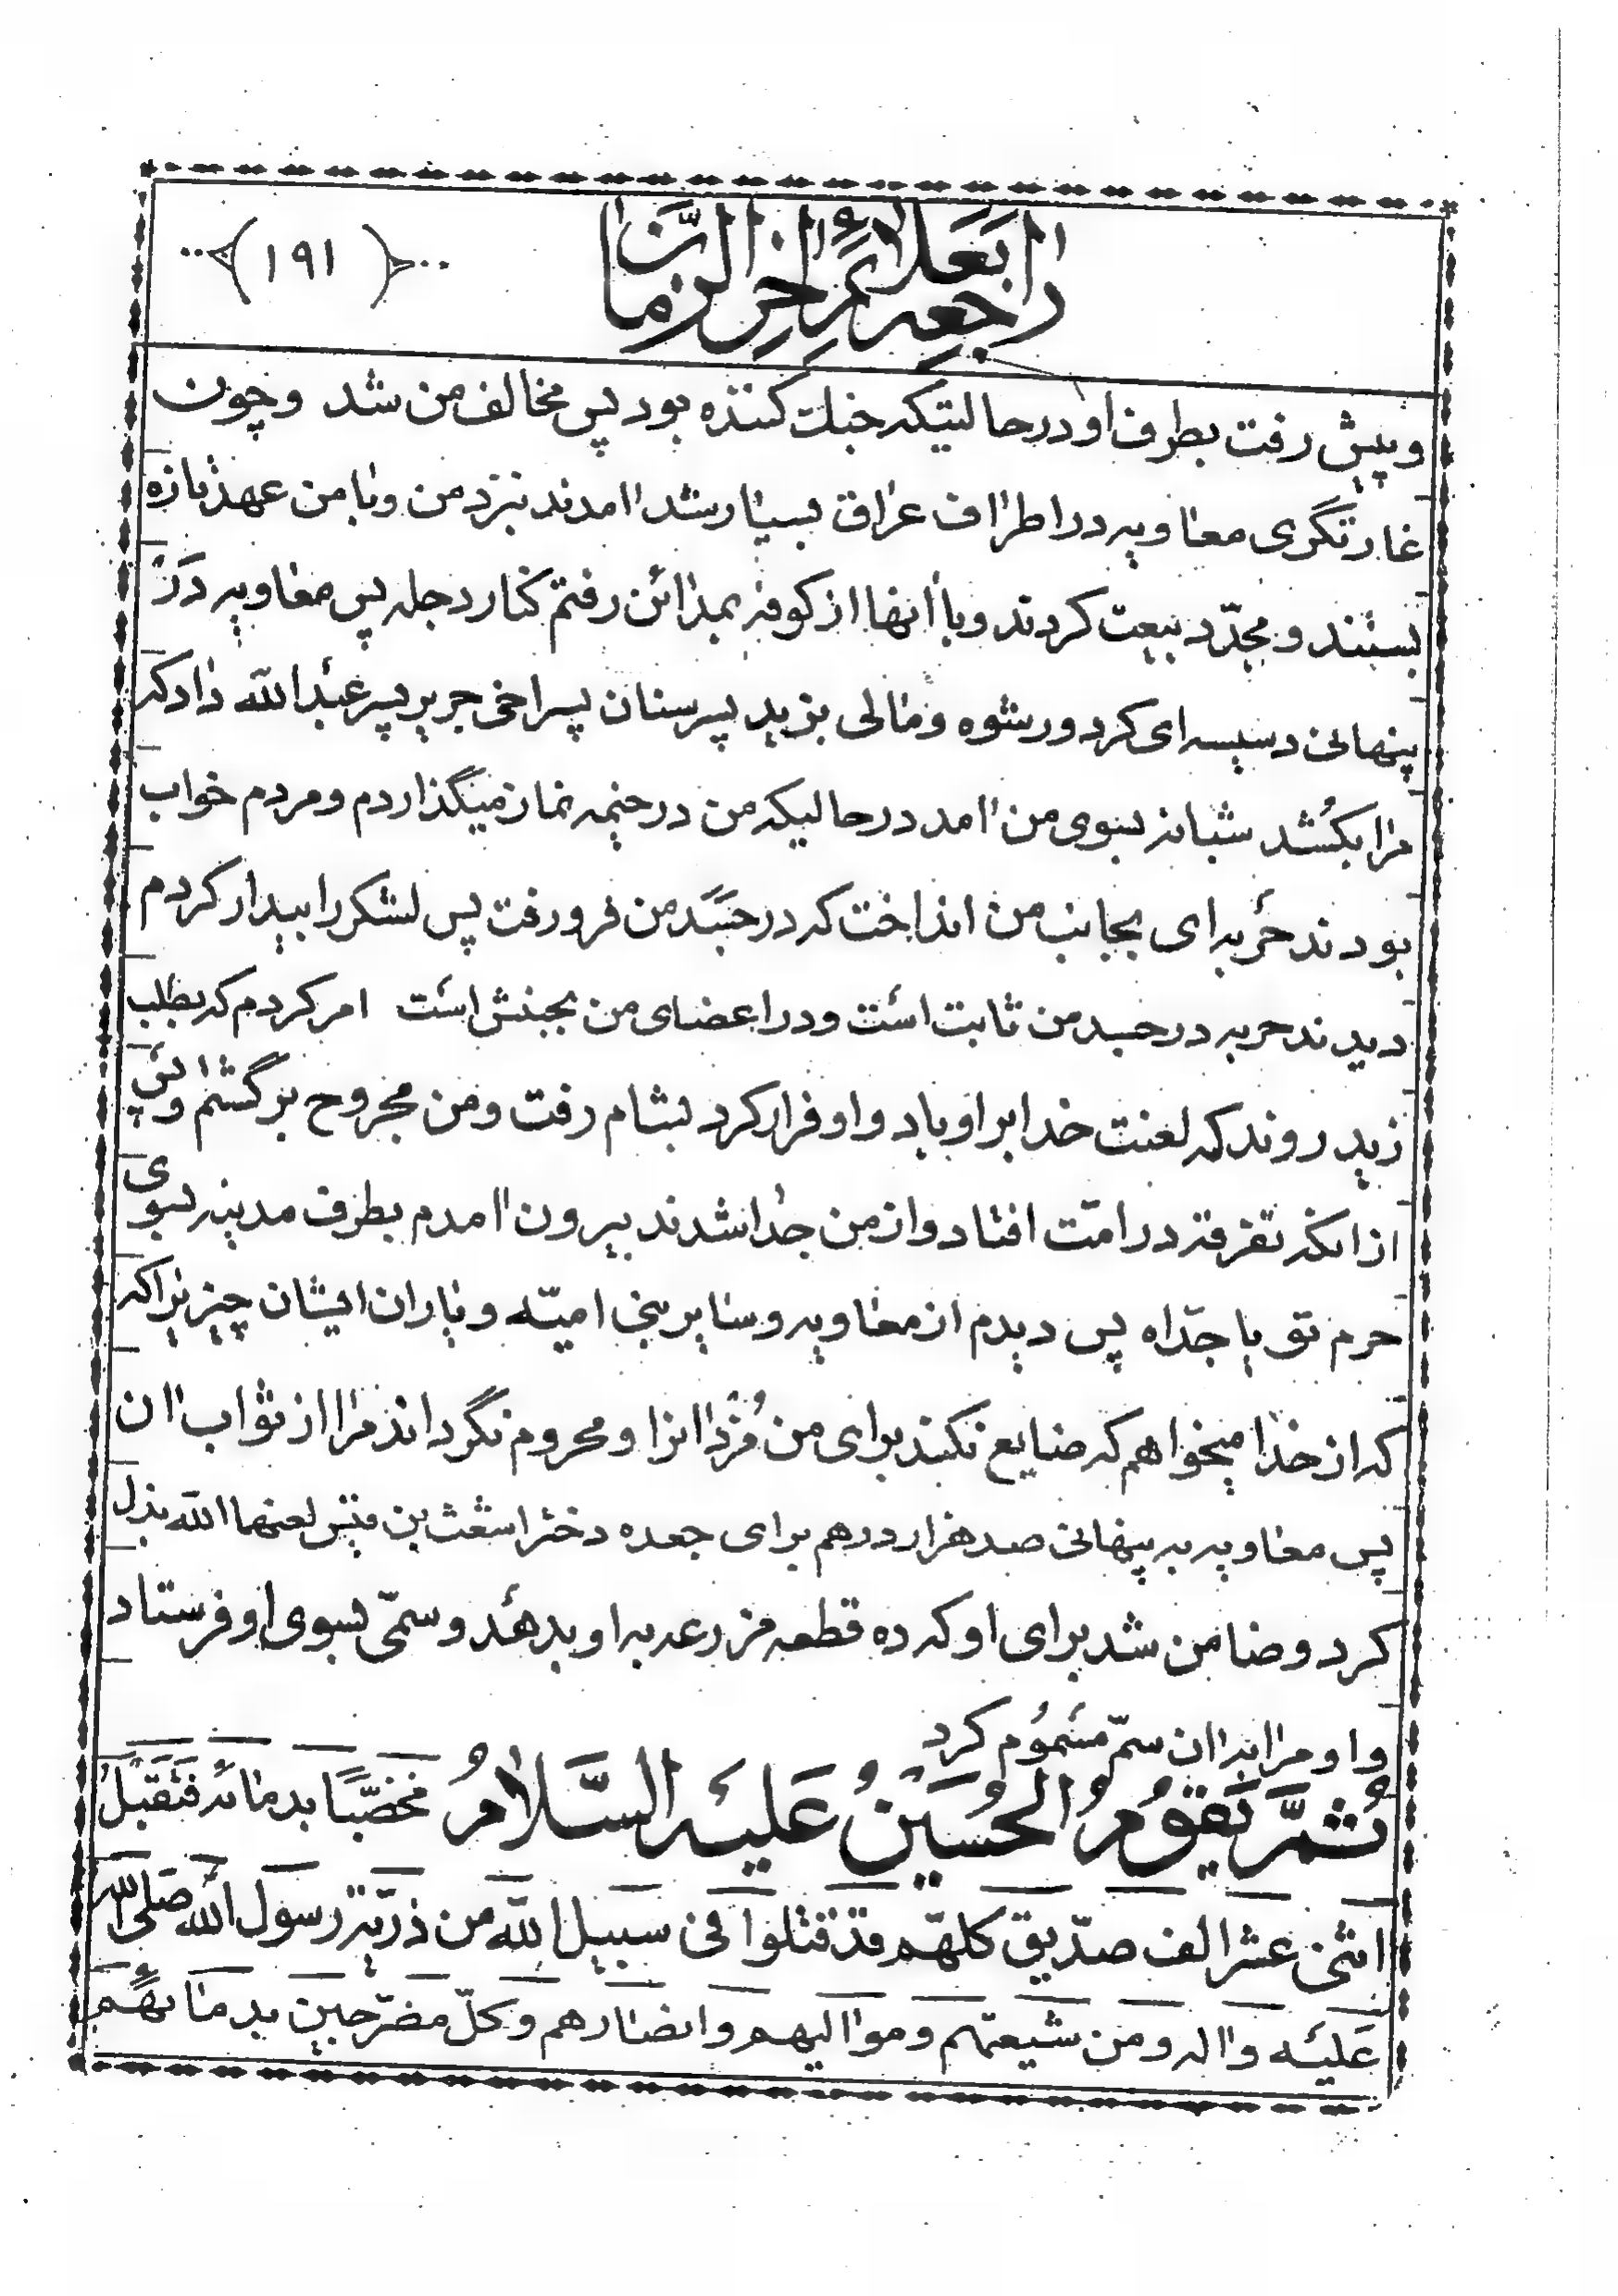 راجعه بعلائم اخر الزمان
(۱۹۱)
و پیش رفت بطرف او در حالتیکه جنک کننده بود پس مخالف من شد و چون
غارتگری معاویه در اطراف عراق بسیار شد امدند نزد من و با من عهد تازه
بستند و مجدّد بیعت کردند و با آنها از کوفه بمدائن رفتم کنار دجله پس معاویه در
پنهانی دسیسه ای کرد و رشوه و مالی بزید پسر سنان پسر اخی جریر پسر عبد الله داد که
مرا بکُشد شبانه بسوی من امد در حالیکه من در خیمه نماز میگذاردم و مردم خواب
بودند حربه ای بجانب من انداخت که در جسد من فرو رفت پس لشکر را بیدار کردم
دیدند حربه در جسد من ثابت است و در اعضای من بجنبش است امر کردم که بطلب
زید روند که لعنت خدا بر او باد و او فرار کرد بشام رفت و من مجروح برگشتم و پس
از انکه تفرقه در امّت افتاد و از من جدا شدند بیرون امدم بطرف مدینه بسوی
حرم تو یا جدّاه پس دیدم از معاویه و سایر بنی امیّه و یاران ایشان چیزیرا که
که از خدا میخواهم که ضایع نکند برای من مُزد انرا و محروم نگرداند مرا از ثواب ان
پس معاویه به پنهانی صد هزار درهم برای جعده دختر اشعث بن قیس لعنهما الله بذل
کرد و ضامن شد برای او که ده قطعه مزرعه به او بدهد و سمّی بسوی او فرستاد
و او مرا بدان سمّ مسموم کرد
ثُمَّ یَقُومُ الحُسَینُ عَلیهِ السَّلامُ مخضّبًا بدمائه فیقبل
اثنی عشر الف صدّیق کلهّم قد قتلوا فی سبیل الله من ذرّیة رسول الله صلی الله
عَلیه واله و من شیعتهم و موالیهم و انصارهم و کلّ مضرّجین بدمائهم